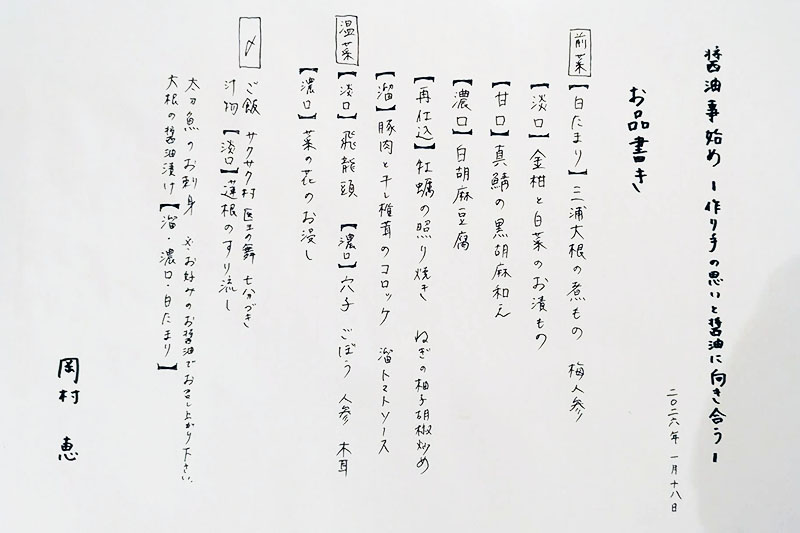 醤油事始め ー作り手の思いと醤油に向き合うー
二〇二六年 一月十八日
お品書き
前菜 【白たまり】三浦大根の煮もの 梅人参
【淡口】金柑と白菜のお漬もの
【甘口】真鯖の黒胡麻和え
【濃口】白胡麻豆腐
【再仕込】牡蠣の照り焼き ねぎの柚子胡椒炒め
【溜】豚肉と干し椎茸のコロッケ 溜トマトソース
温菜 【淡口】飛龍頭 【濃口】穴子 ごぼう 人参 木耳
【濃口】菜の花のお浸し
〆 ご飯 サクサク村 医王の舞 七分づき
汁物 【淡口】蓮根のすり流し
太刀魚のお刺身 ※お好みのお醤油でお召し上がり下さい。
大根の醤油漬け【溜・濃口・白たまり】
岡村 恵